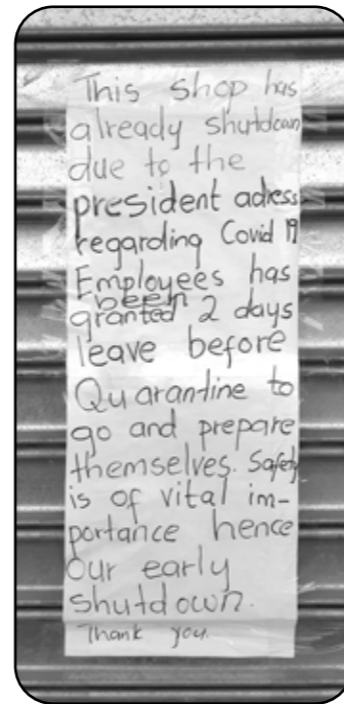 This shop has
already shutdown
due to the
president adress
regarding Covid 19
Employees has
been
granted 2 days
leave before
Quarantine to
go and prepare
themselves. Safety
is of vital im-
portance hence
our early
shutdown.
Thank you.